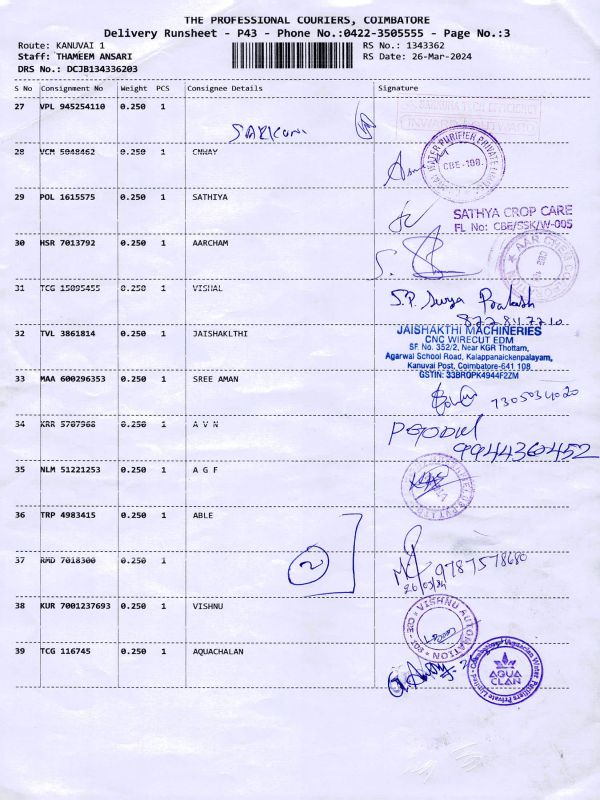 THE PROFESSIONAL COURIERS, COIMBATORE
Delivery Runsheet - P43 - Phone No.:0422-3505555 - Page No.:3
Route: KANUVAI 1 RS No.: 1343362
Staff: THAMEEM ANSARI RS Date: 26-Mar-2024
DRS No.: DCJB134336203
S No Consignment No Weight PCS Consignee Details Signature
27 VPL 945254110 0.250 1
28 VCM 5048462 0.250 1 CNWAY
WATER PURIFIER PRIVATE
CBE-108.
29 POL 1615575 0.250 1 SATHIYA
SATHYA CROP CARE
FL No: CBE/SSK/W-005
30 HSR 7013792 0.250 1 AARCHAM
31 TCG 15095455 0.250 1 VISHAL
S.P. Surya Prakash
32 TVL 3861814 0.250 1 JAISHAKLTHI
JAISHAKTHI MACHINERIES
CNC WIRECUT EDM
SF. No. 352/2, Near KGR Thottam,
Agarwal School Road, Kalappanaickenpalayam,
Kanuvai Post, Coimbatore-641 108.
GSTIN: 33BROPK4944F2ZM
33 MAA 600296353 0.250 1 SREE AMAN
7305034020
34 KRR 5707968 0.250 1 A V N
9944360452
35 NLM 51221253 0.250 1 A G F
36 TRP 4983415 0.250 1 ABLE
2
37 RMD 7018300 0.250 1
9787578680
38 KUR 7001237693 0.250 1 VISHNU
VISHNU AUTOMATION
39 TCG 116745 0.250 1 AQUACHALAN
AQUA
CLAN